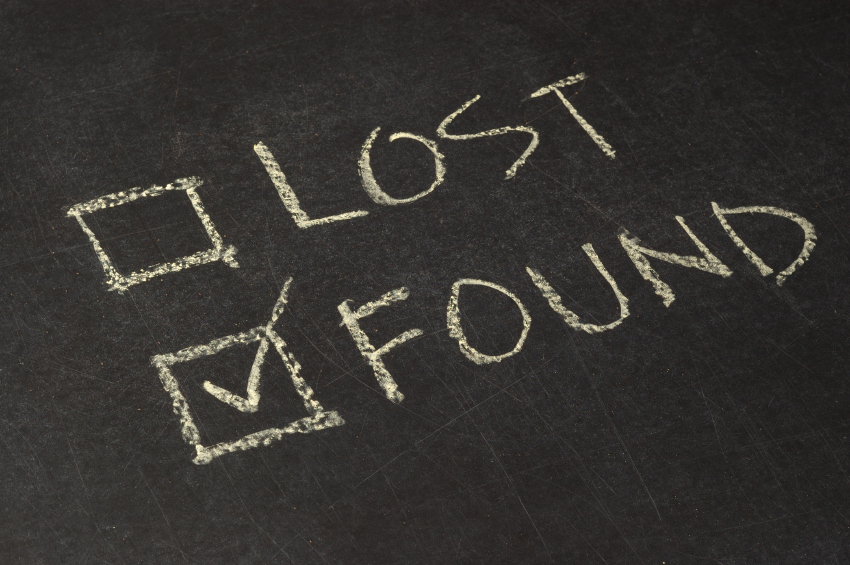 LOST
FOUND